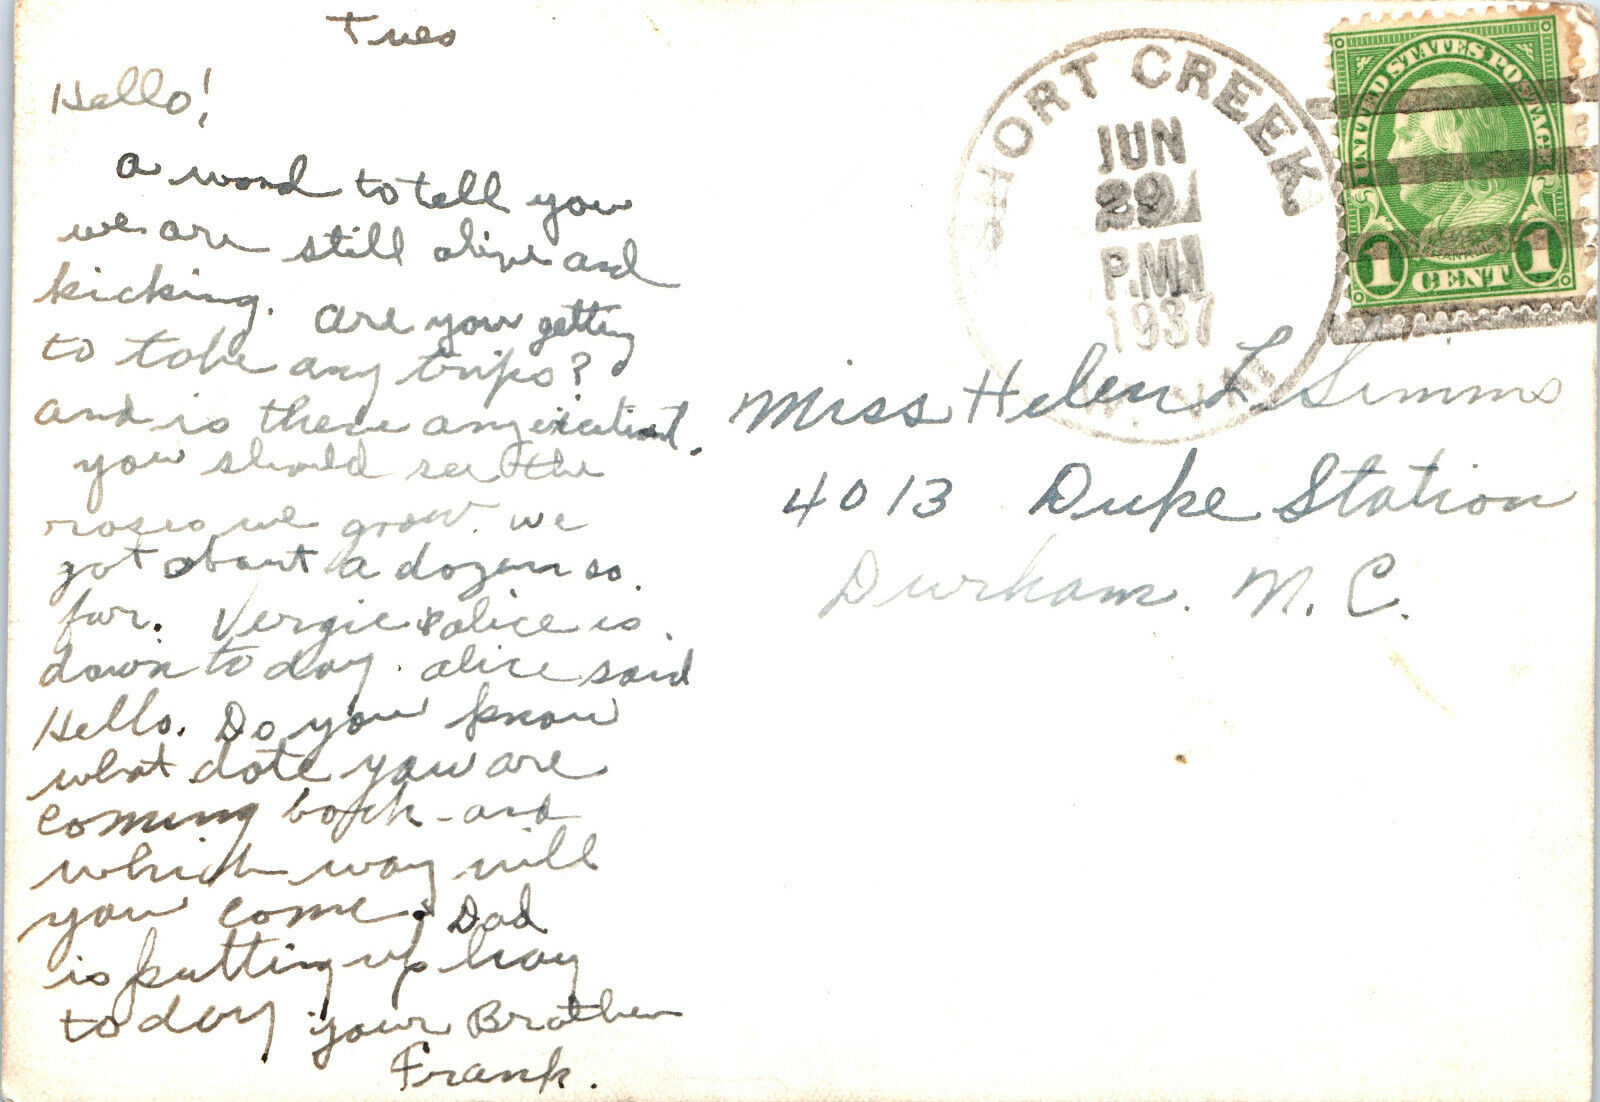 Tues
Hello!
a word to tell you
we are still alive and
kicking. are you getting
to take any trips?
and is there any excitement.
you should see the
roses we grow. we
got about a dozen so
far. Vergie & alice is
down to day. alice said
Hello. Do you know
what date you are
coming back - and
which way will
you come. Dad
is putting up hay
to day your Brother
Frank.
SHORT CREEK
JUN
29
P.M.
1937
UNITED STATES POSTAGE
FRANKLIN
1 CENT 1
Miss Helen L. Simms
4013 Duke Station
Durham. N. C.